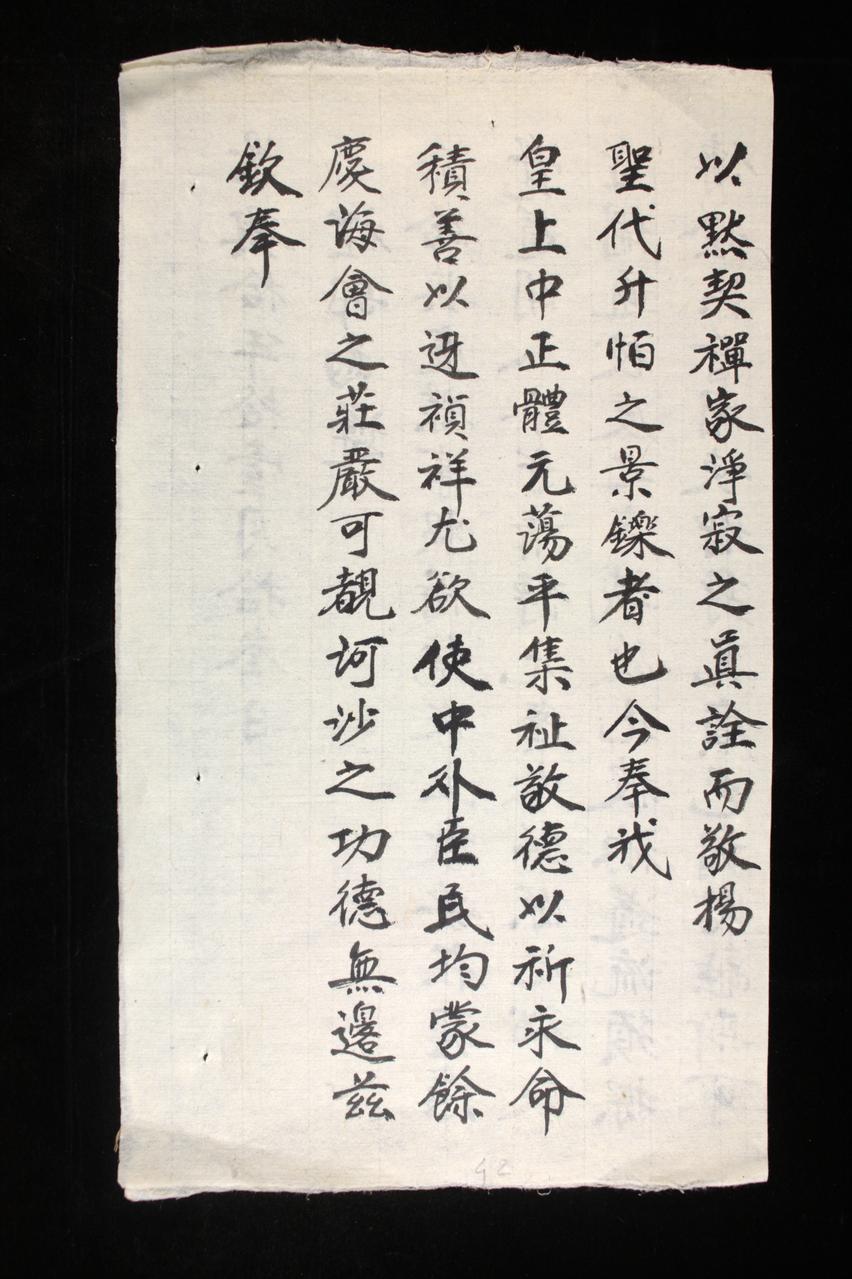 以黙契禪家淨寂之眞詮而敬揚
聖代升怕之景鑠者也今奉我
皇上中正體元蕩平集祉敬德以祈永命
積善以迓禎祥尤欲使中外臣民均蒙餘
慶海會之莊嚴可覩訶沙之功德無邊茲
欽奉
92